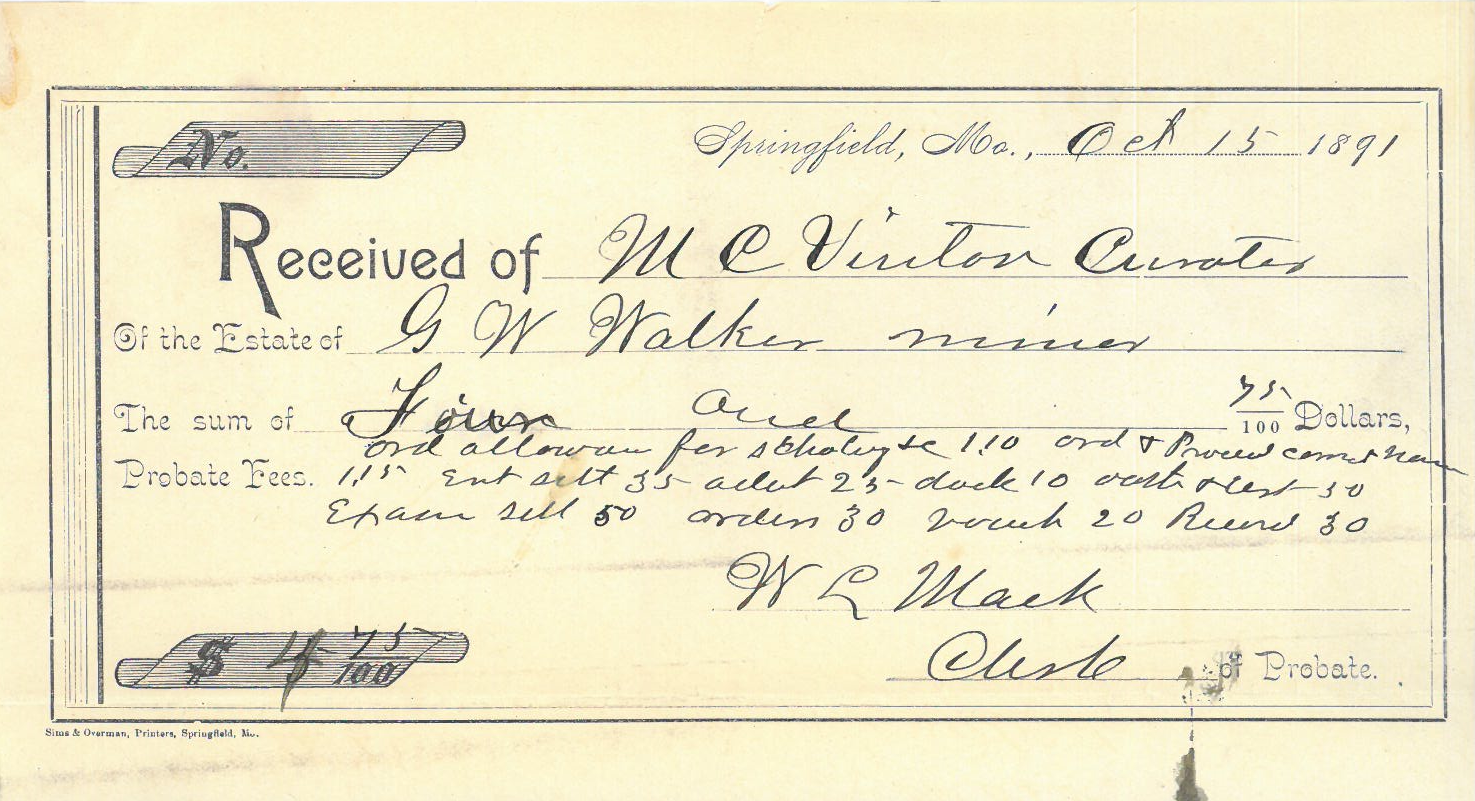 No.
Springfield, Mo., Oct 15 1891
Received of M C Vinton Curator
Of the Estate of G W Walker minor
The sum of Four and 75/100 Dollars,
ord allowan for 1.10 ord &
Probate Fees. 1.15 Ent sett 35 25 dock 10 oath & 30
Exam sett 50 orders 30 vouch 20 Record 30
W L Mack
Clerk of Probate.
$ 4 75/100
Sims & Overman, Printers, Springfield, Mo.